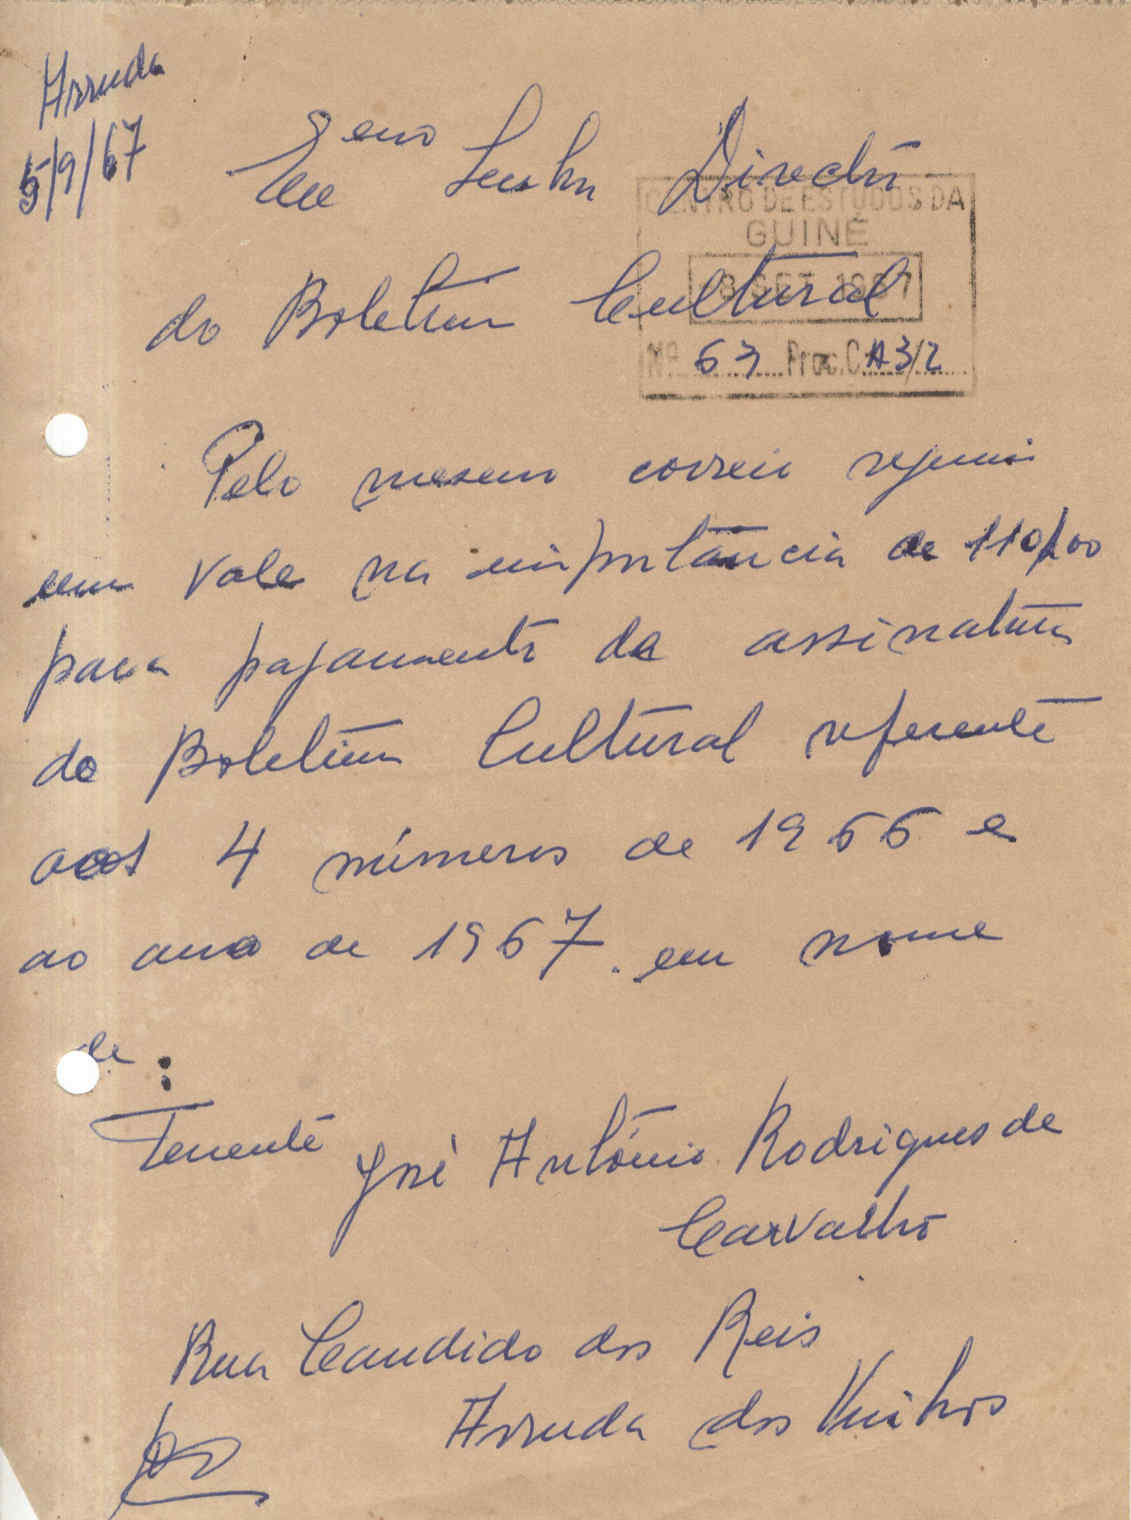 Arruda
5/9/67
Exmo Senhor Director
CENTRO DE ESTUDOS DA
GUINÉ
do Boletim Cultural
8 SET. 1967
Nº 63 Proc. C A 3/2
Pelo mesmo correio
um vale na importância de 110$00
para pagamento da assinatura
do Boletim Cultural referente
aos 4 números de 1966 e
ao ano de 1967. em nome
de :
Tenente José António Rodrigues de
Carvalho
Rua Candido dos Reis
Arruda dos Vinhos